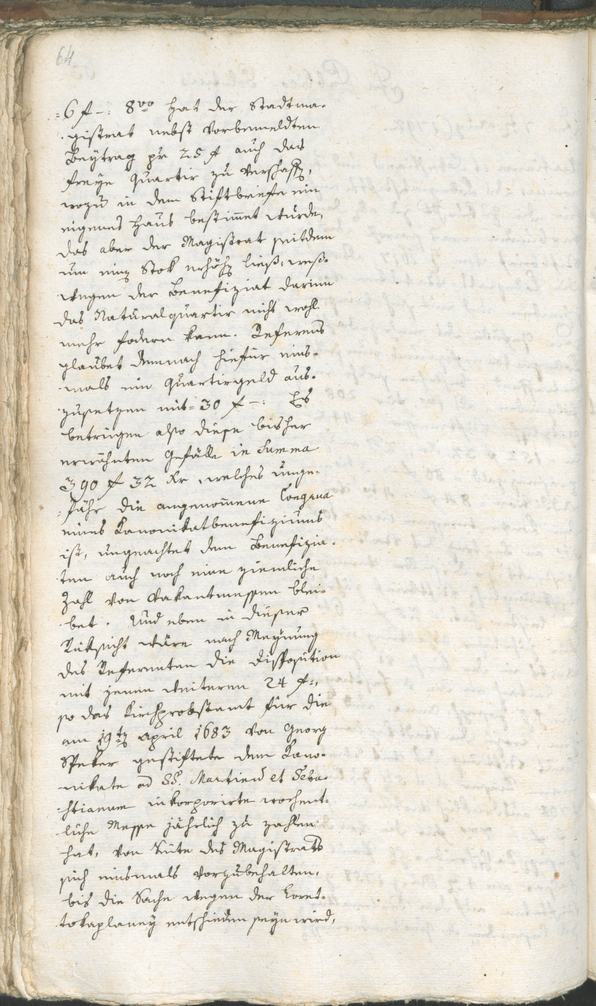 64.
6 f –: 8vo hat der Stadtma-
gistrat nebst vorbemeldten
Beytrag pr 25 f auch das
freye Quartir zu verschaffen,
wozu in dem Stiftbriefe ein
eigenes Haus bestimmt wurde,
das aber der Magistrat seitdem
um einen Stok erhöhen ließ, weß-
wegen der Benefiziat darinn
das Naturalquartir nicht wohl
mehr fodern kann. Referens
glaubet demnach hiefür eins-
mals ein Quartiergeld aus-
zusetzen mit 30 f –: Es
betrügen also diese bisher
erwähnten Gefälle in Summa
390 f 32 Kr, welches unge-
fähr die angenommene Congrua
eines Kanonikatbenefiziums
ist, ungeachtet dem Benefizia-
ten auch noch eine ziemliche
Zahl von vakantmessen blei-
bet. Und eben in dieser
Rüksicht wäre nach Meynung
des Referenten die Disposition
mit jenen weiteren 24 f:,
so das Kirchprobstamt für die
am 19ten April 1683 von Georg
Speker gestiftete dem Kano-
nikate ad SS. Martinum et Seba-
stianum inkorporirte wochent-
liche Messe jährlich zu zahlen
hat, von Seite des Magistrats
sich einsmals vorzubehalten,
bis die Sache wegen der Loret-
tokaplaney entschieden seyn wird,